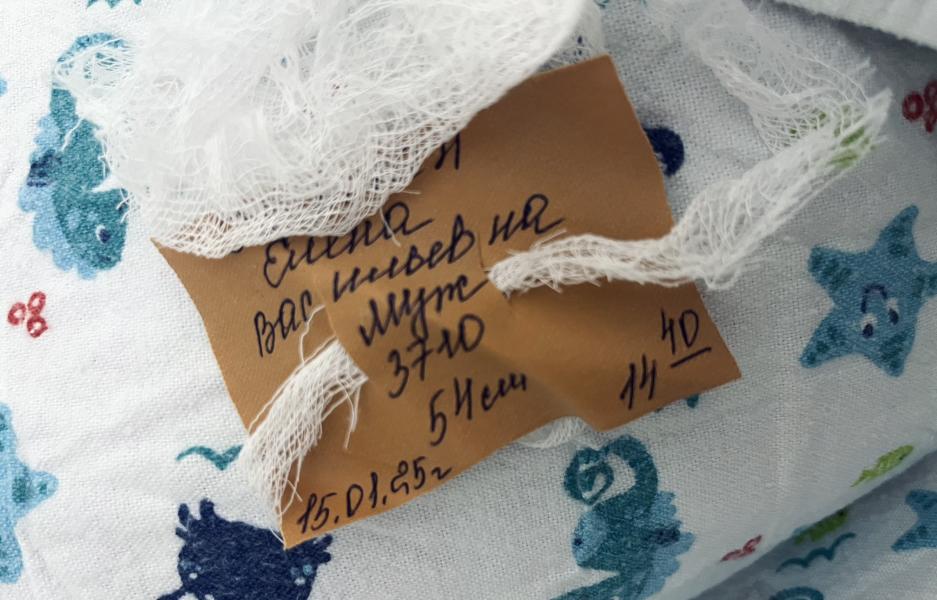 Елена
Васильевна
Муж
3710
54см
14 40
15.01.25г